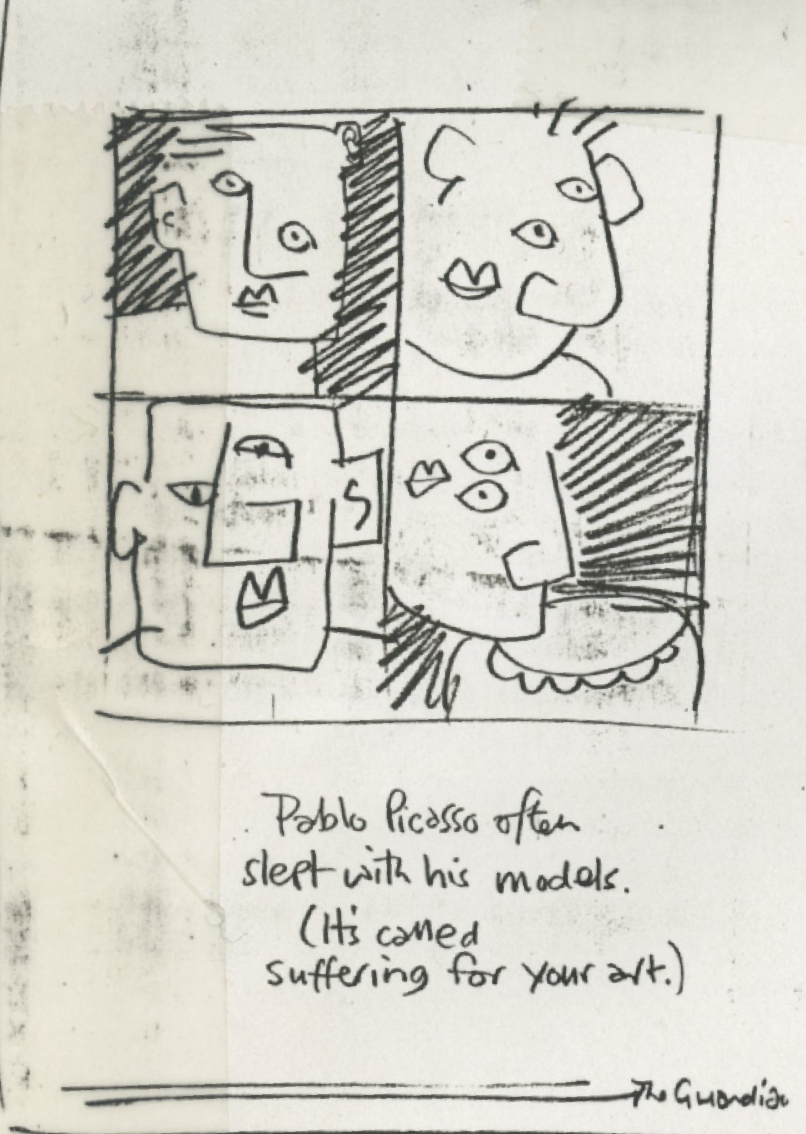 Pablo Picasso often
slept with his models.
(It's called
suffering for your art.)
The Guardian